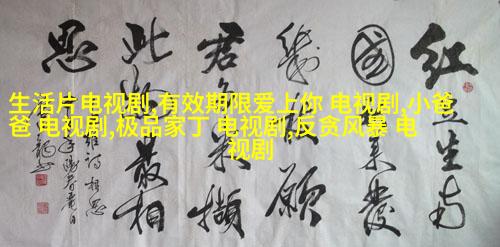 生活片电视剧,有效期限爱上你 电视剧,小爸
爸 电视剧,极品家丁 电视剧,反贪风暴 电
视剧
红豆生南
國春来發
幾枝願
君多采撷
此物最相
思